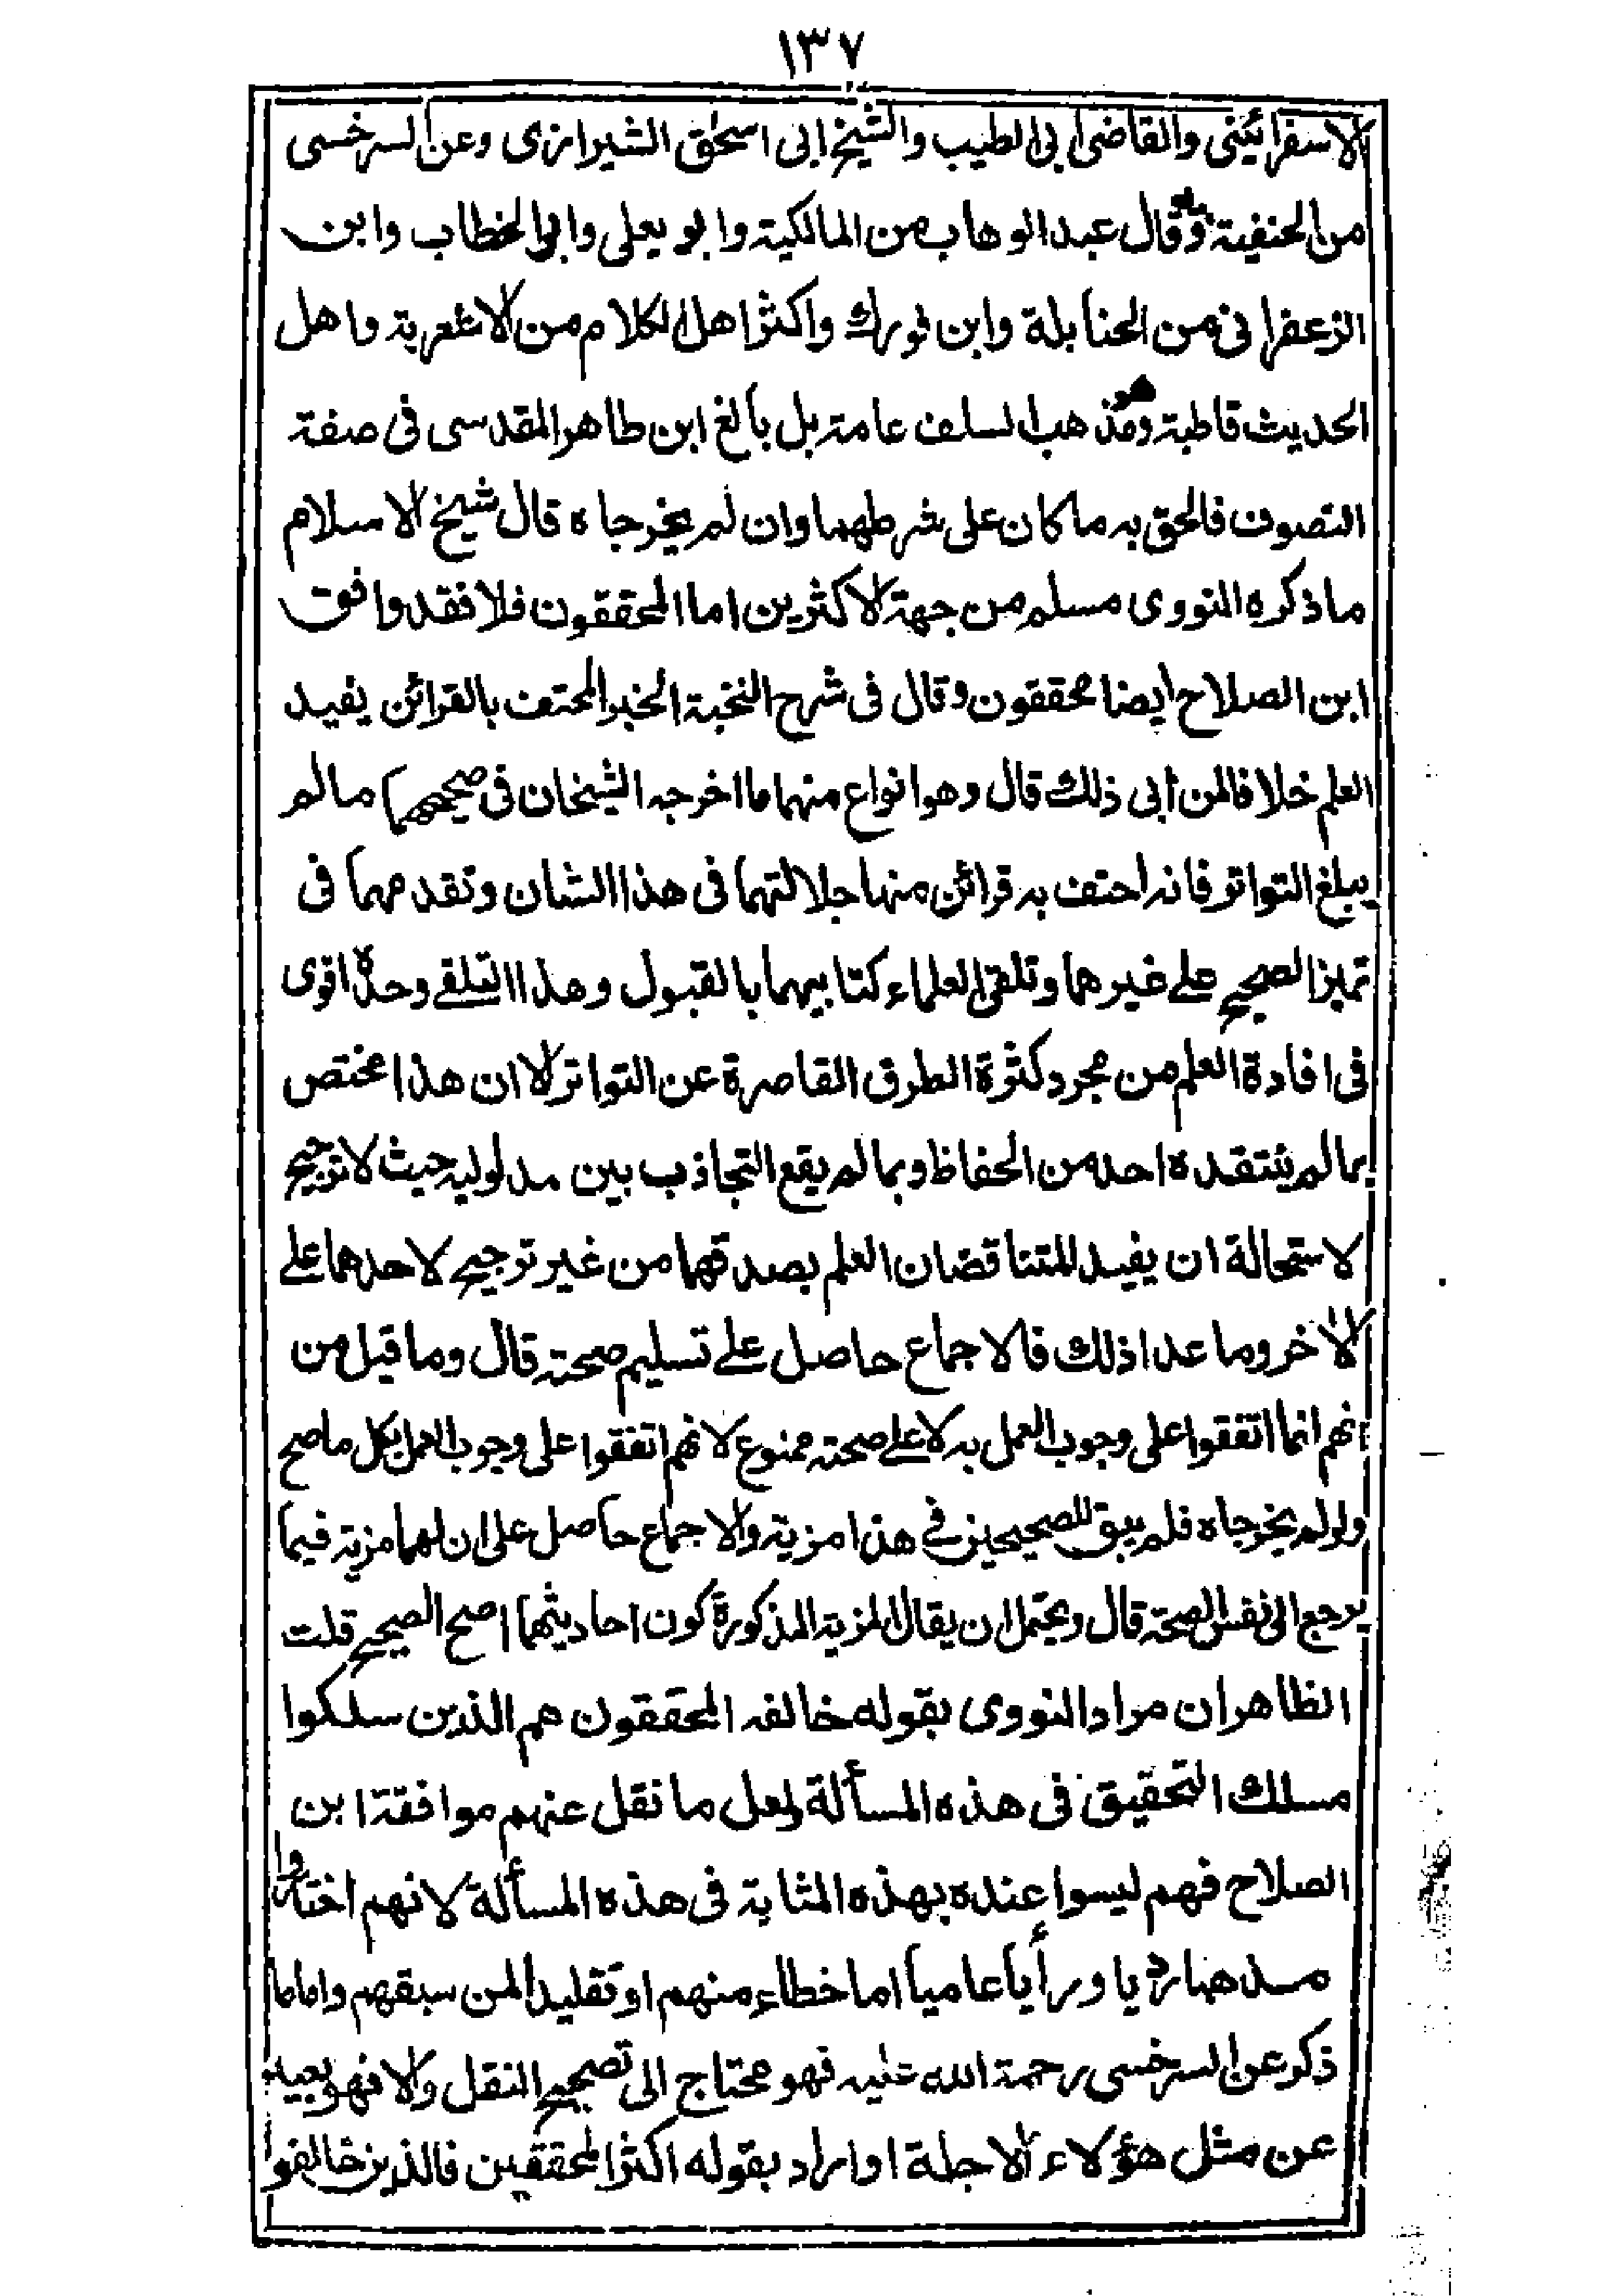 ١٣٧
الاسفرائينى والقاضى ابى الطيب والشيخ ابى اسحٰق الشيرازى وعن السرخسى
من الحنفية وقال عبد الوهاب من المالكية وابو يعلى وابو الخطاب وابن
الزعفرانى من الحنابلة وابن فورك واكثر اهل الكلام من الاشعرية واهل
الحديث قاطبة وهو مذهب السلف عامة بل بالغ ابن طاهر المقدسى فى صفة
التصوف فالحق به ما كان على شرطهما وان لم يخرجاه قال شيخ الاسلام
ما ذكره النووى مسلم من جهة الاكثرين اما المحققون فلا فقد وافق
ابن الصلاح ايضا محققون وقال فى شرح النخبة الخبر المحتف بالقرائن يفيد
العلم خلافا لمن أبى ذلك قال وهو انواع منها ما اخرجه الشيخان فى صحيحهما مما لم
يبلغ التواتر فانه احتف به قرائن منها جلالتهما فى هذا الشان وتقدمهما فى
تميز الصحيح على غيرهما وتلقى العلماء كتابيهما بالقبول وهذا التلقى وحده اقوى
فى افادة العلم من مجرد كثرة الطرق القاصرة عن التواتر الا ان هذا مختص
بما لم ينتقده احد من الحفاظ وبما لم يقع التجاذب بين مدلوليه حيث لا ترجيح
لاستحالة ان يفيد المتناقضان العلم بصدقهما من غير ترجيح لاحدهما على
الاٰخر وما عدا ذلك فالاجماع حاصل على تسليم صحته قال وما قيل من
انهم انما اتفقوا على وجوب العمل به لا على صحته ممنوع لانهم اتفقوا على وجوب العمل بكل ما صح
ولو لم يخرجاه فلم يبق للصحيحين فى هذا مزية والاجماع حاصل على ان لهما مزية فيما
يرجع الى نفس الصحة قال ويحتمل ان يقال المزية المذكورة كون احاديثهما اصح الصحيح قلت
الظاهر ان مراد النووى بقوله خالفه المحققون هم الذين سلكوا
مسلك التحقيق فى هذه المسألة ولعل ما نقل عنهم موافقة ابن
الصلاح فهم ليسوا عنده بهذه المثابة فى هذه المسألة لانهم اختاروا
مذهبا رديا ورأيا عاميا اما خطاء منهم او تقليدا لمن سبقهم واما ما
ذكر عن السرخسى رحمة الله عليه فهو محتاج الى تصحيح النقل والا فهو بعيد
عن مثل هؤلاء الاجلة او اراد بقوله اكثر المحققين فالذين خالفوا